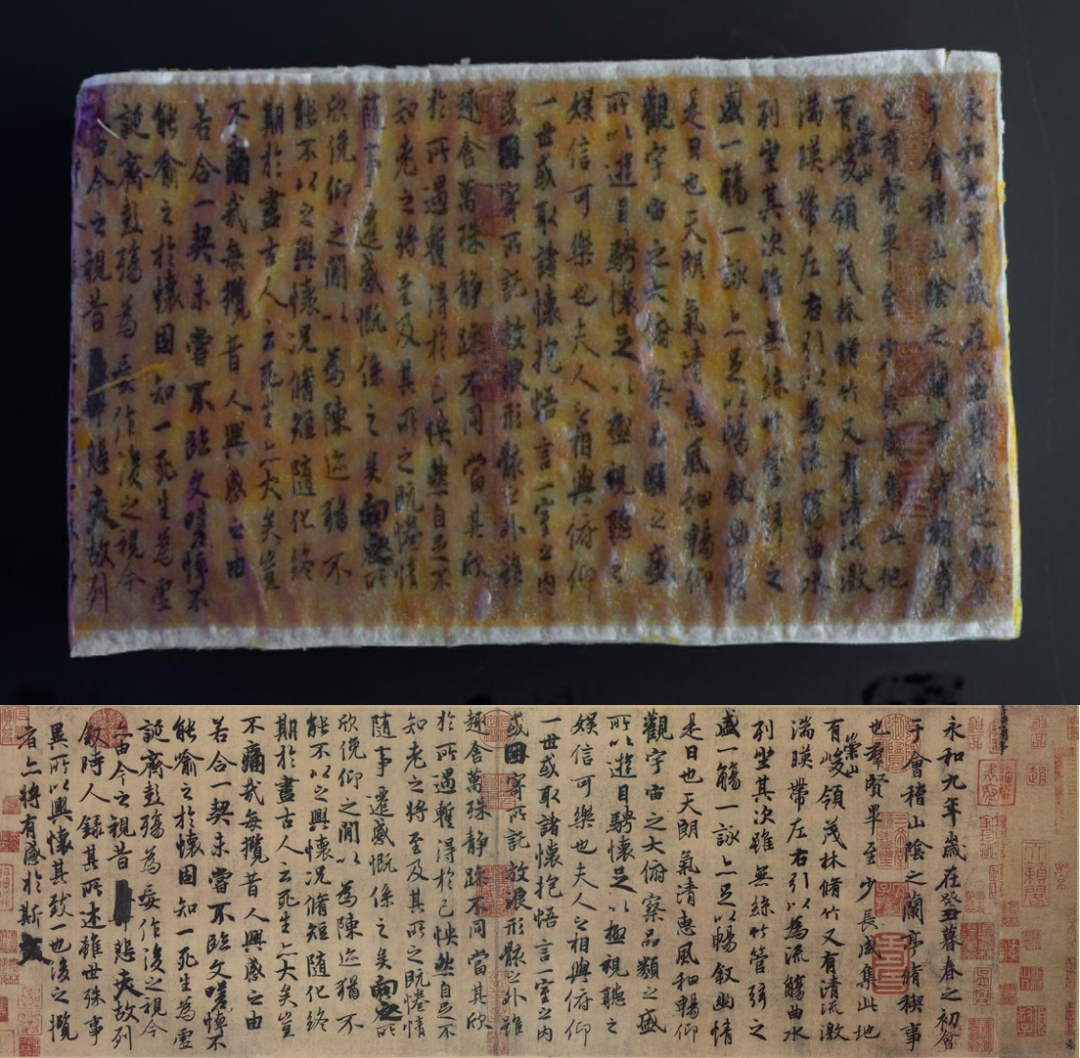 永和九年歲在癸丑暮春之初會
于會稽山陰之蘭亭脩稧事
也羣賢畢至少長咸集此地
有崇山峻領茂林脩竹又有清流激
湍暎帶左右引以為流觴曲水
列坐其次雖無絲竹管弦之
盛一觴一詠亦足以暢敘幽情
是日也天朗氣清惠風和暢仰
觀宇宙之大俯察品類之盛
所以遊目騁懷足以極視聽之
娛信可樂也夫人之相與俯仰
一世或取諸懷抱悟言一室之內
或因寄所託放浪形骸之外雖
趣舍萬殊靜躁不同當其欣
於所遇蹔得於己怏然自足不
知老之將至及其所之既惓情
隨事遷感慨係之矣向之所
欣俛仰之閒以為陳迹猶不
能不以之興懷況脩短隨化終
期於盡古人云死生亦大矣豈
不痛哉每攬昔人興感之由
若合一契未嘗不臨文嗟悼不
能喻之於懷固知一死生為虛
誕齊彭殤為妄作後之視今
亦由今之視昔悲夫故列
永和九年歲在癸丑暮春之初會
于會稽山陰之蘭亭脩稧事
也羣賢畢至少長咸集此地
有崇山峻領茂林脩竹又有清流激
湍暎帶左右引以為流觴曲水
列坐其次雖無絲竹管弦之
盛一觴一詠亦足以暢敘幽情
是日也天朗氣清惠風和暢仰
觀宇宙之大俯察品類之盛
所以遊目騁懷足以極視聽之
娛信可樂也夫人之相與俯仰
一世或取諸懷抱悟言一室之內
或因寄所託放浪形骸之外雖
趣舍萬殊靜躁不同當其欣
於所遇蹔得於己怏然自足不
知老之將至及其所之既惓情
隨事遷感慨係之矣向之所
欣俛仰之閒以為陳迹猶不
能不以之興懷況脩短隨化終
期於盡古人云死生亦大矣豈
不痛哉每攬昔人興感之由
若合一契未嘗不臨文嗟悼不
能喻之於懷固知一死生為虛
誕齊彭殤為妄作後之視今
亦由今之視昔悲夫故列
敘時人錄其所述雖世殊事
異所以興懷其致一也後之攬
者亦將有感於斯文